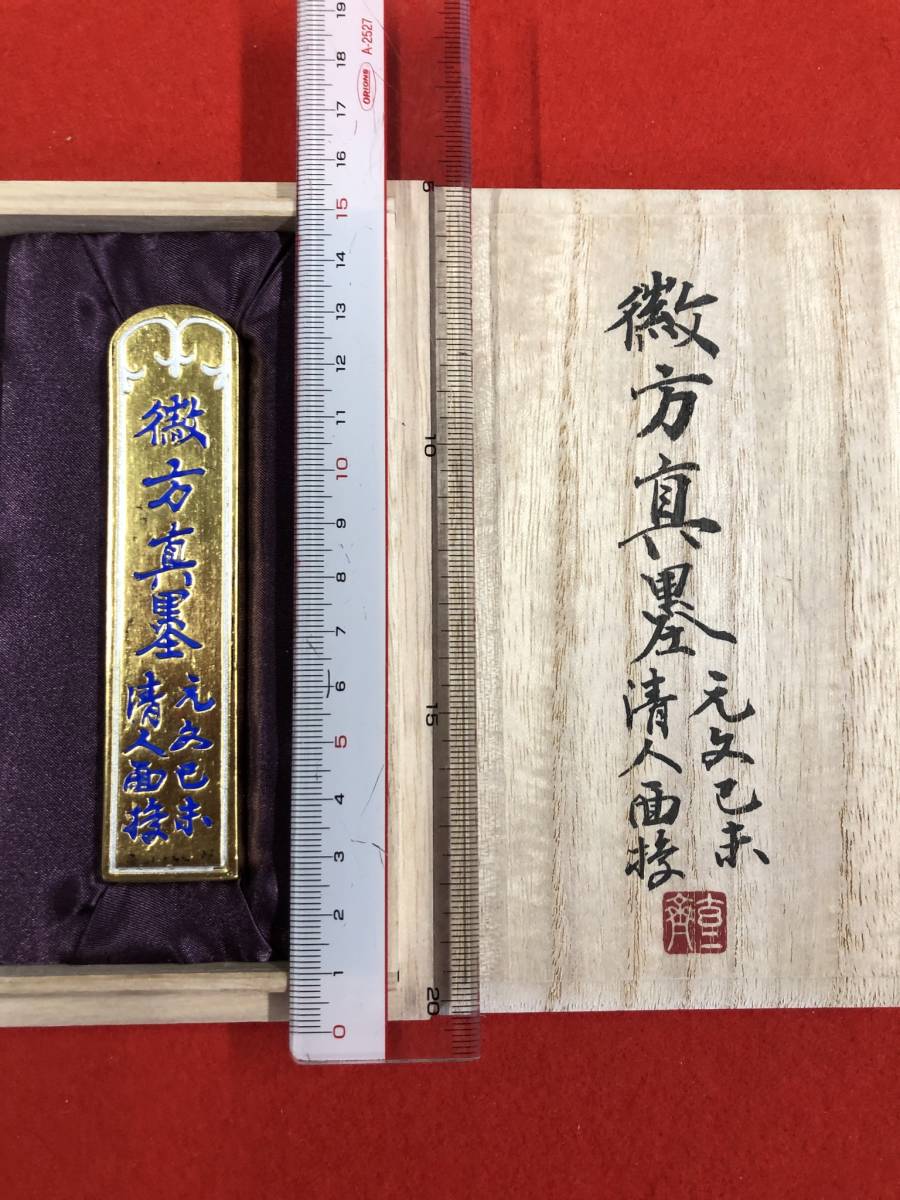 徽方真墨
元文己未
清人面授
ORIONS A-2527
19
18
17
16
15
14
13
12
11
10
9
8
7
6
5
4
3
2
1
0
5
10
15
20
徽方真墨
元文己未
清人面授